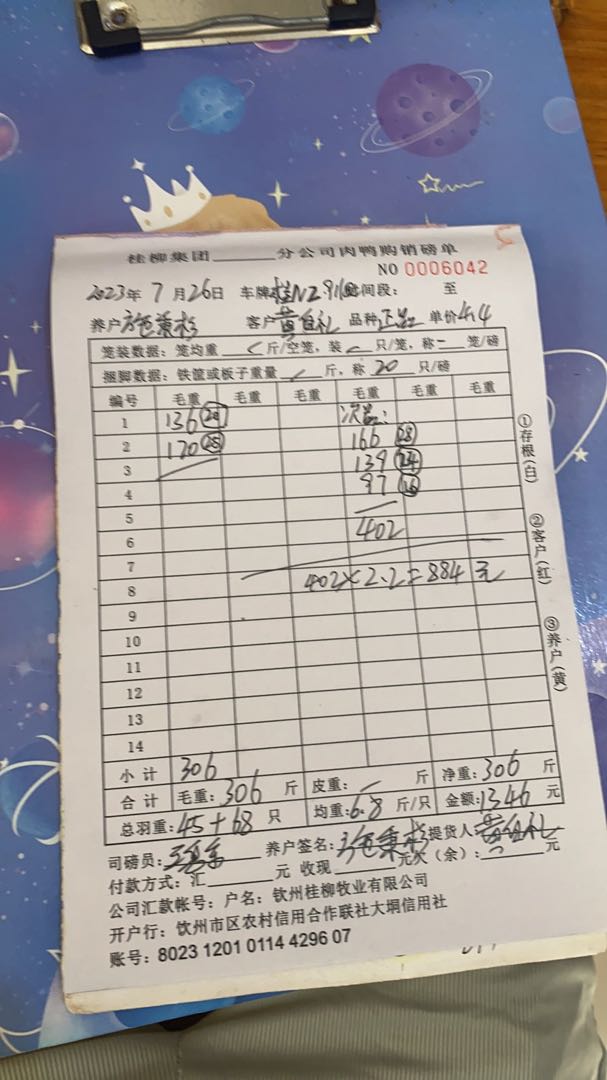 桂柳集团______分公司肉鸭购销磅单
NO 0006042
2023年 7 月 26日 车牌: 桂N2 时间段: 至
养户 客户 黄自礼 品种 正品 单价 4.4
笼装数据: 笼均重 斤/空笼, 装 只/笼, 称 笼/磅
捆脚数据: 铁筐或板子重量 斤, 称 20 只/磅
编号 毛重 毛重 毛重 毛重 毛重 毛重
1 136 次品:
2 170 166 28
3 139 24
4 97 16
5
6 402
7
8 402×2.2=884 元
9
10
11
12
13
14
小 计 306
合 计 毛重: 306 斤 皮重: 斤 净重: 306 斤
总羽重: 45+68 只 均重: 6.8 斤/只 金额: 1346 元
司磅员: 养户签名: 提货人: 黄自礼
付款方式: 汇______元 收现______元欠(余): 元
公司汇款帐号: 户名: 钦州桂柳牧业有限公司
开户行: 钦州市区农村信用合作联社大垌信用社
账号: 8023 1201 0114 4296 07
①存根(白)
②客户(红)
③养户(黄)